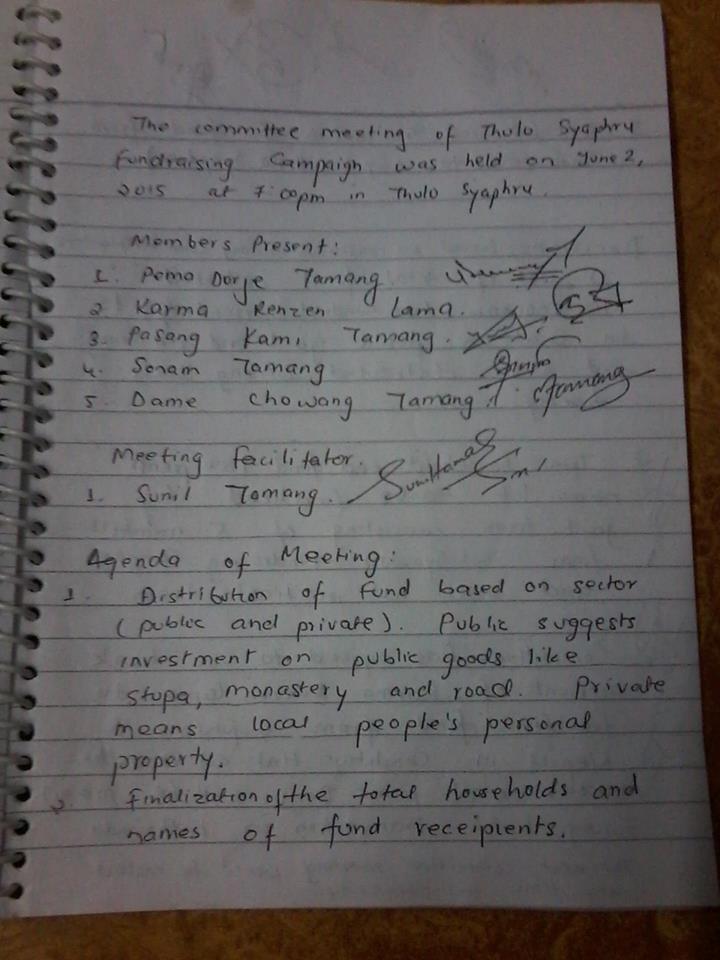 The committee meeting of Thulo Syaphru
Fundraising Campaign was held on June 2,
2015 at 7:00pm in Thulo Syaphru.
Members Present:
1. Pema Dorje Tamang
2 Karma Renzen Lama.
3. Pasang Kami Tamang.
4. Sonam Tamang
5. Dame Chowang Tamang. Tamang
Meeting facilitator.
1. Sunil Tamang.
Agenda of Meeting:
1. Distribution of fund based on sector
(public and private). Public suggests
investment on public goods like
stupa, monastery and road. Private
means local people's personal
property.
2. Finalization of the total households and
names of fund receipients.